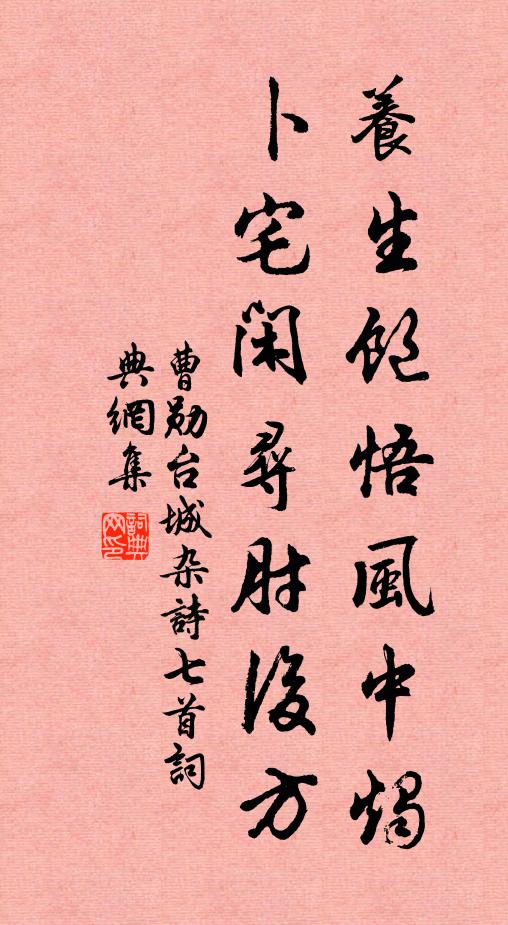 養生飽悟風中燭
卜宅閑尋肘後方
曹勛台城杂詩七首詞
典網集
詞典网印